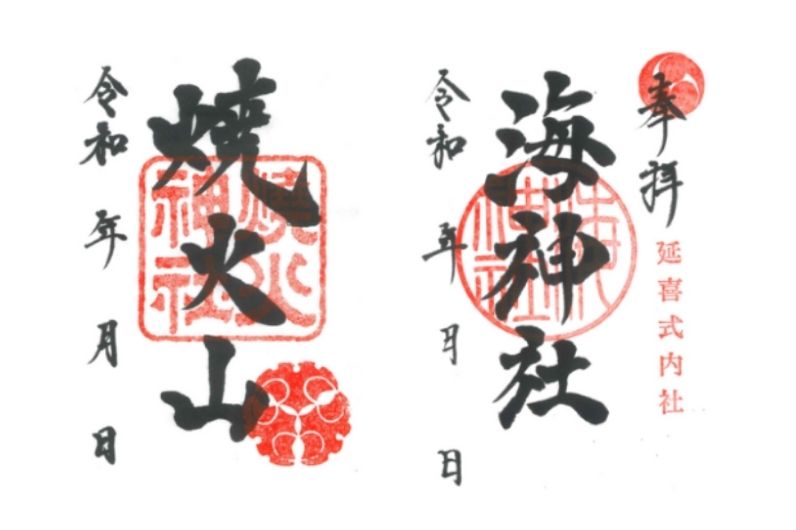 奉拝
延喜式内社
海神社
海神社
令和 年 月 日
焼火山
焼火神社
令和 年 月 日